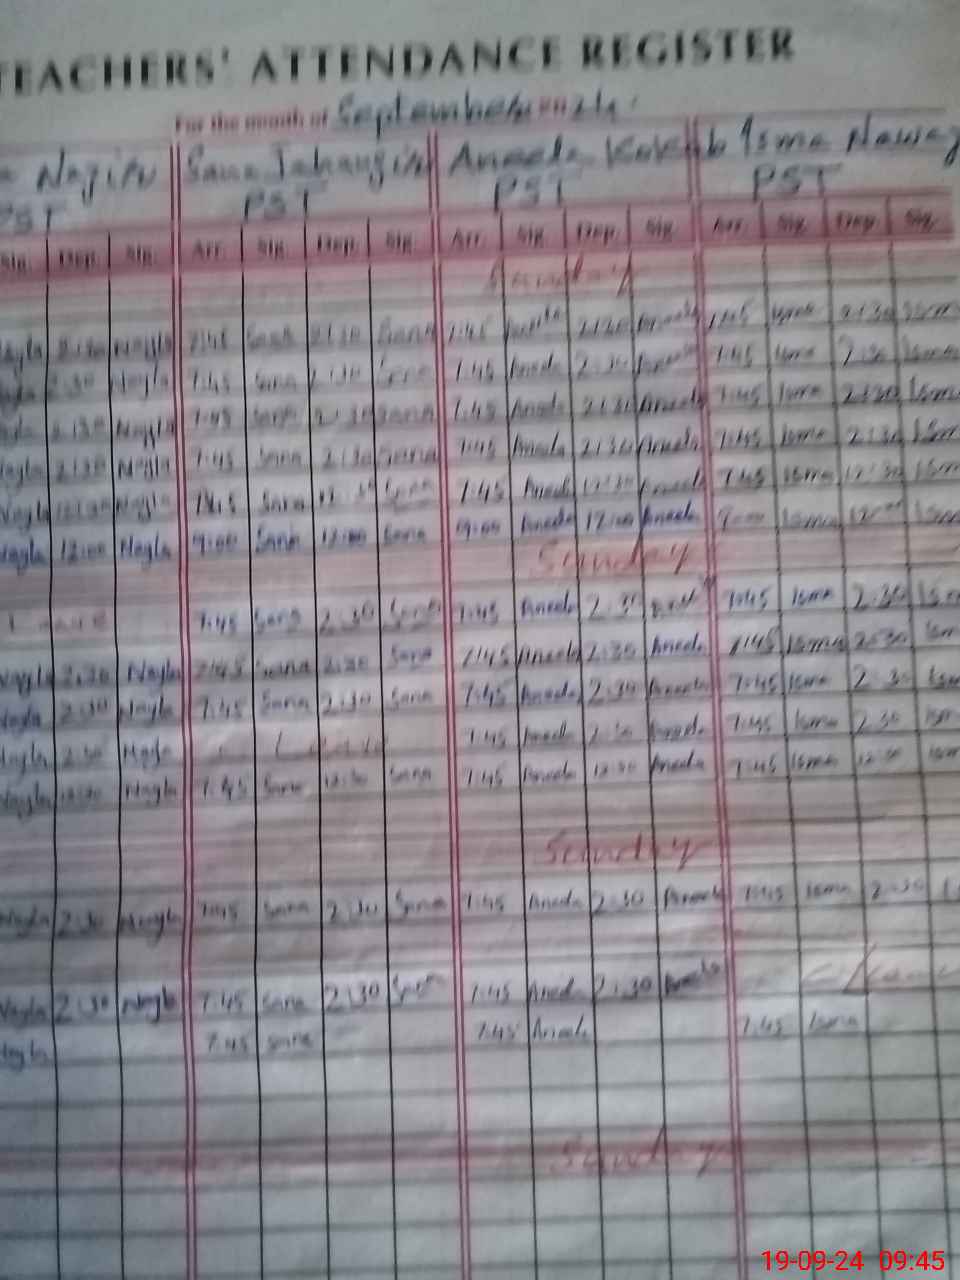 TEACHERS' ATTENDANCE REGISTER
For the month of September
Sana Jahangir Aneeda Kokab Isma Nawaz
PST PST PST PST
Sig. Dep. Sig. Arr. Sig. Dep. Sig. Arr. Sig. Dep. Sig. Arr. Sig. Dep. Sig.
Sunday
Nayla 2:30 Nayla 7:45 Sana 2:30 Sana 7:45 2:30 7:45 Isma 2:30 Ism
2:30 Nayla 7:45 Sana 2:30 Sana 7:45 Aneeda 2:30 7:45 Isma 2:30 Isma
2:30 Nayla 7:45 Sana 2:30 Sana 7:45 Aneeda 2:30 Aneeda 7:45 Isma 2:30 Isma
Nayla 2:30 Nayla 7:45 Sana 2:30 Sana 7:45 Aneeda 2:30 Aneeda 7:45 Isma 2:30 Ism
Nayla 12:30 Nayla 7:45 Sana Sana 7:45 Aneeda 12:30 Aneeda 7:45 Isma 12:30 Ism
Nayla 12:00 Nayla 9:00 Sana 12:00 Sana 9:00 Aneeda 12:00 Aneeda 9:00 Isma 12:00 Ism
Sunday
Leave 7:45 Sana 2:30 Sana 7:45 Aneeda 2:30 7:45 Isma 2:30 Ism
Nayla 2:30 Nayla 7:45 Sana 2:30 Sana 7:45 Aneeda 2:30 Aneeda 7:45 Isma 2:30 Ism
Nayla 2:30 Nayla 7:45 Sana 2:30 Sana 7:45 Aneeda 2:30 Aneeda 7:45 Isma 2:30 Ism
Nayla 2:30 Nayla Leave 7:45 Aneeda 2:30 Aneeda 7:45 Isma 2:30 Ism
Nayla 12:30 Nayla 7:45 Sana 12:30 Sana 7:45 Aneeda 12:30 Aneeda 7:45 Isma 12:30 Ism
Sunday
Nayla 2:30 Nayla 7:45 Sana 2:30 Sana 7:45 Aneeda 2:30 Aneeda 7:45 Isma 2:30
Nayla 2:30 Nayla 7:45 Sana 2:30 Sana 7:45 Aneeda 2:30 Aneeda
Nayla 7:45 Sana 7:45 Aneeda 7:45 Isma
Sunday
19-09-24 09:45